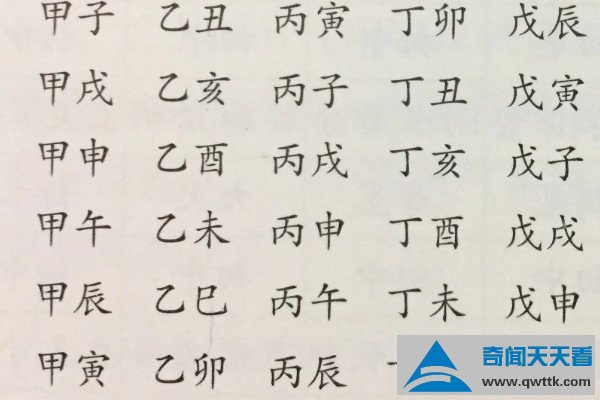 甲子 乙丑 丙寅 丁卯 戊辰
甲戌 乙亥 丙子 丁丑 戊寅
甲申 乙酉 丙戌 丁亥 戊子
甲午 乙未 丙申 丁酉 戊戌
甲辰 乙巳 丙午 丁未 戊申
甲寅 乙卯 丙辰
奇闻天天看
www.qwttk.com